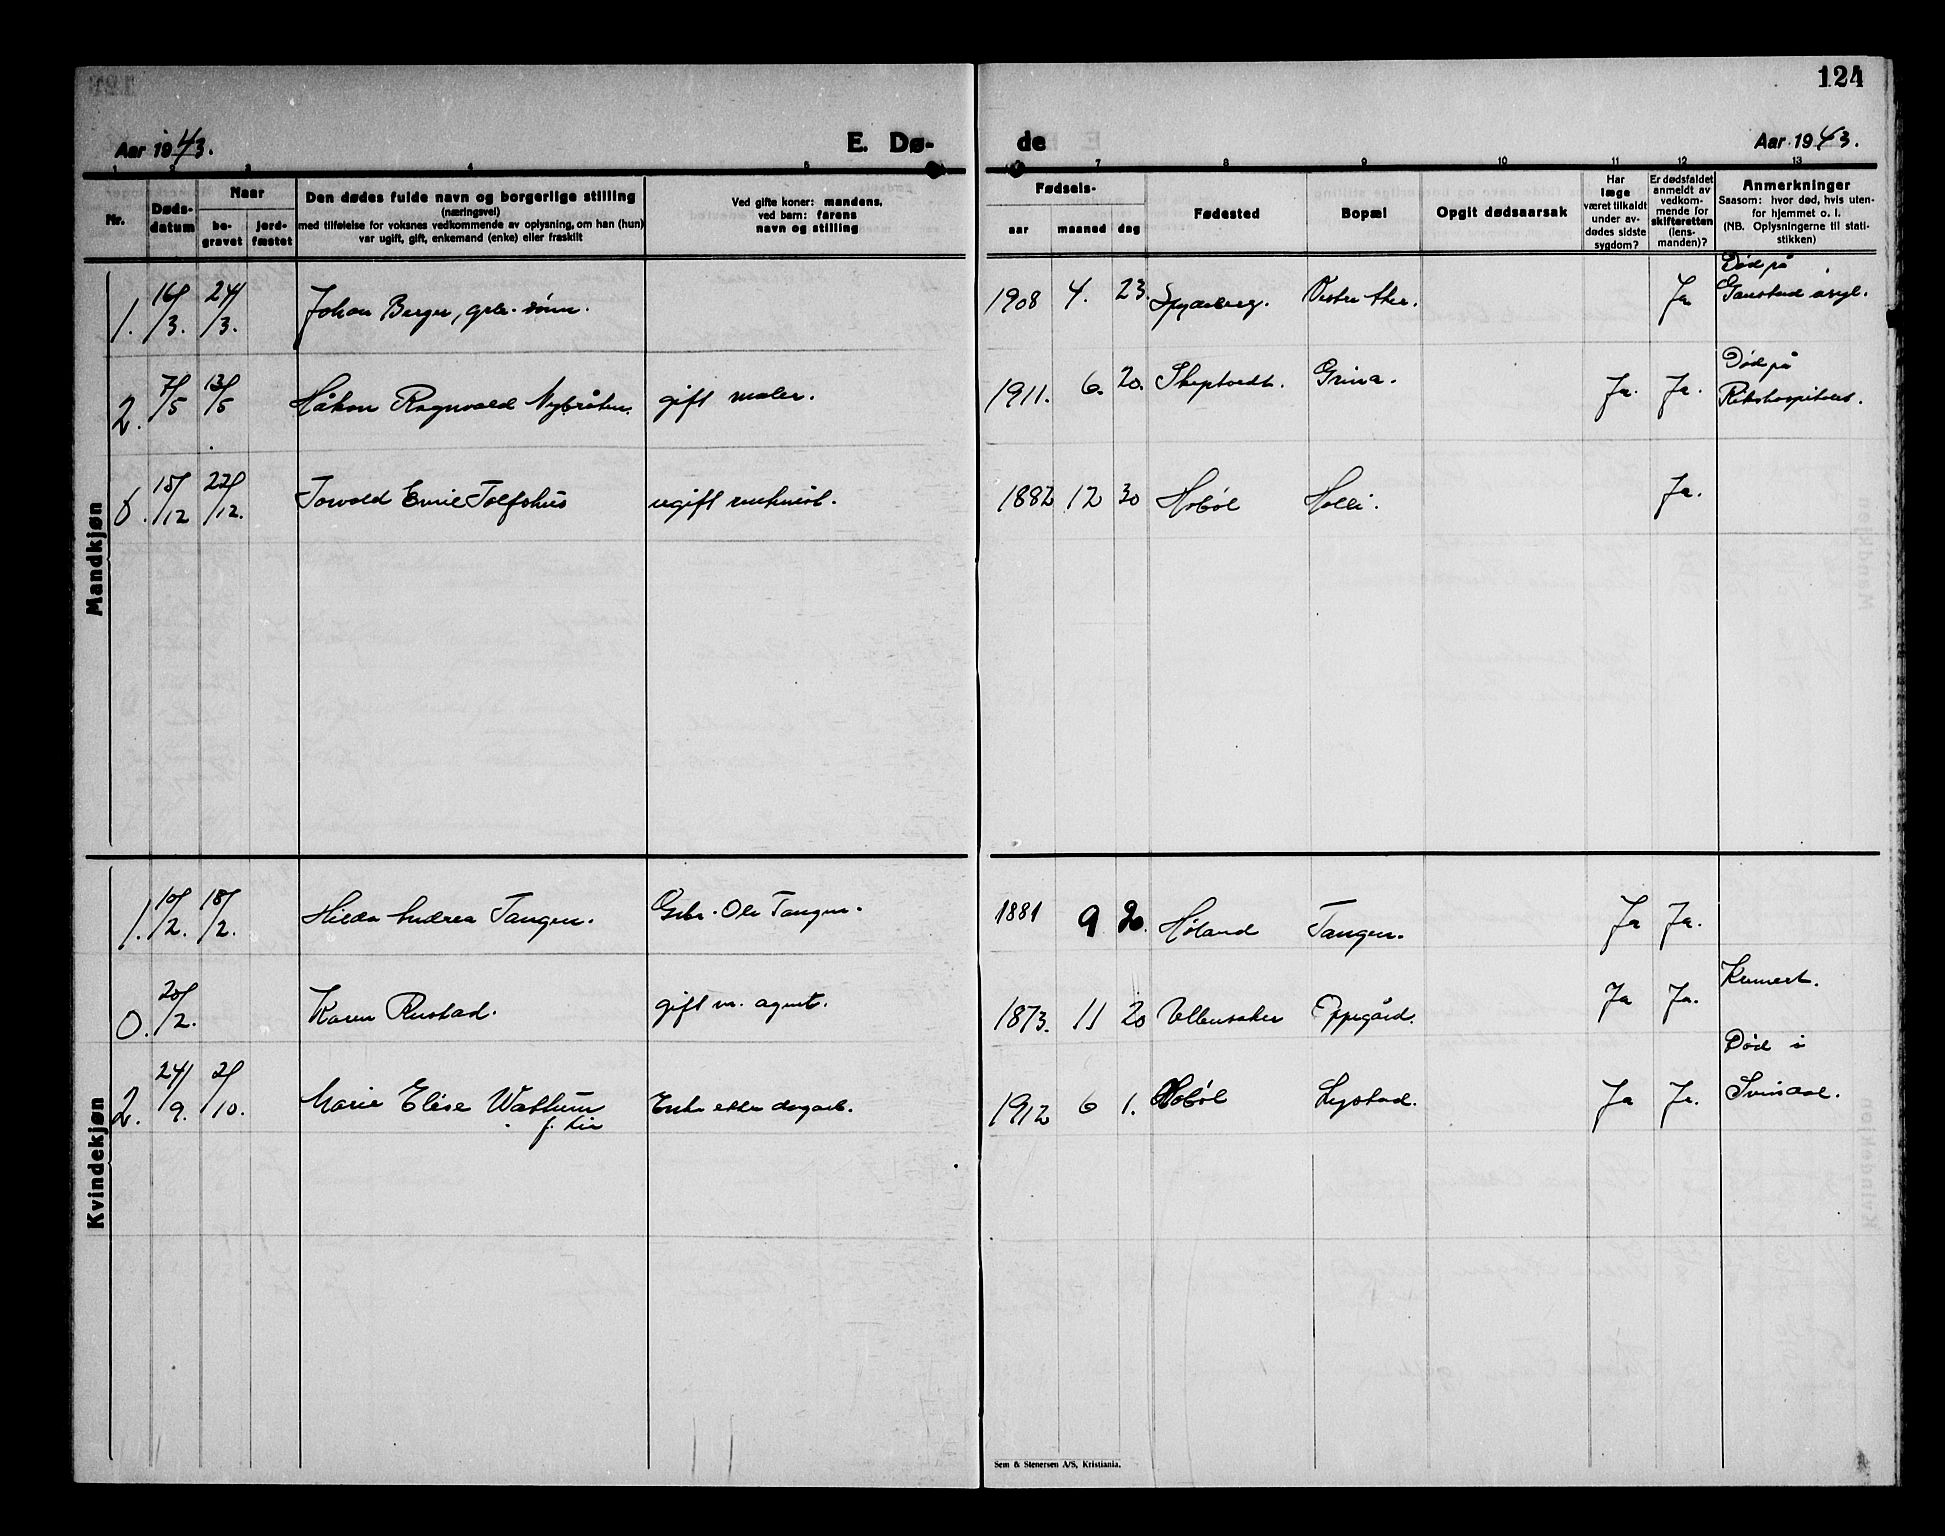 124
Aar 1943.
E. Dø-
de
Aar 1943.
1 2 3 4 5
7 8 9 10 11 12 13
Nr.
Døds-
datum
Naar
be-
gravet
jord-
fæstet
Den dødes fulde navn og borgerlige stilling
(næringsvei)
med tilføielse for voksnes vedkommende av oplysning, om han (hun)
var ugift, gift, enkemand (enke) eller fraskilt
Ved gifte koner: mandens,
ved barn: farens
navn og stilling
Fødsels-
aar maaned dag
Fødested
Bopæl
Opgit dødsaarsak
Har
læge
været tilkaldt
under av-
dødes sidste
sygdom?
Er dødsfaldet
anmeldt av
vedkom-
mende for
skifteretten
(lens-
manden)?
Anmerkninger
Saasom: hvor død, hvis uten-
for hjemmet o. l.
(NB. Oplysningerne til stati-
stikken)
Mandkjøn
1. 16/3. 24/3. Johan Berger, grb. sønn. 1908 4. 23. Spydeberg. Vestre Aker. Ja Død på
Gaustad asyl.
2. 7/5 13/5 Håkon Ragnvald Nybråten. gift maler. 1911. 6. 20. Skeptvedt. Grina. Ja. Ja. Død på
Rikshospitalet.
15/12 22/12. Torvald Emil Tolfshus ugift 1882 12 30 Hobøl Holli. Ja.
Kvindekjøn
1. 10/2. 18/2. Hilda Andrea Tangen. Grbr. Ole Tangen. 1881 9 20. Høland Tangen. Ja Ja.
0. 20/2. Karen Rustad. gift m. agent. 1873. 11 20 Ullensaker Oppegård. Ja Ja. Kremert.
2. 24/9. 2/10. Marie Elise Wattum
f. Lie
Enke etter dagarb. 1912 6 1. Hobøl Lystad. Ja Ja. Død i
Svindal.
Sem & Stenersen A/S, Kristiania.